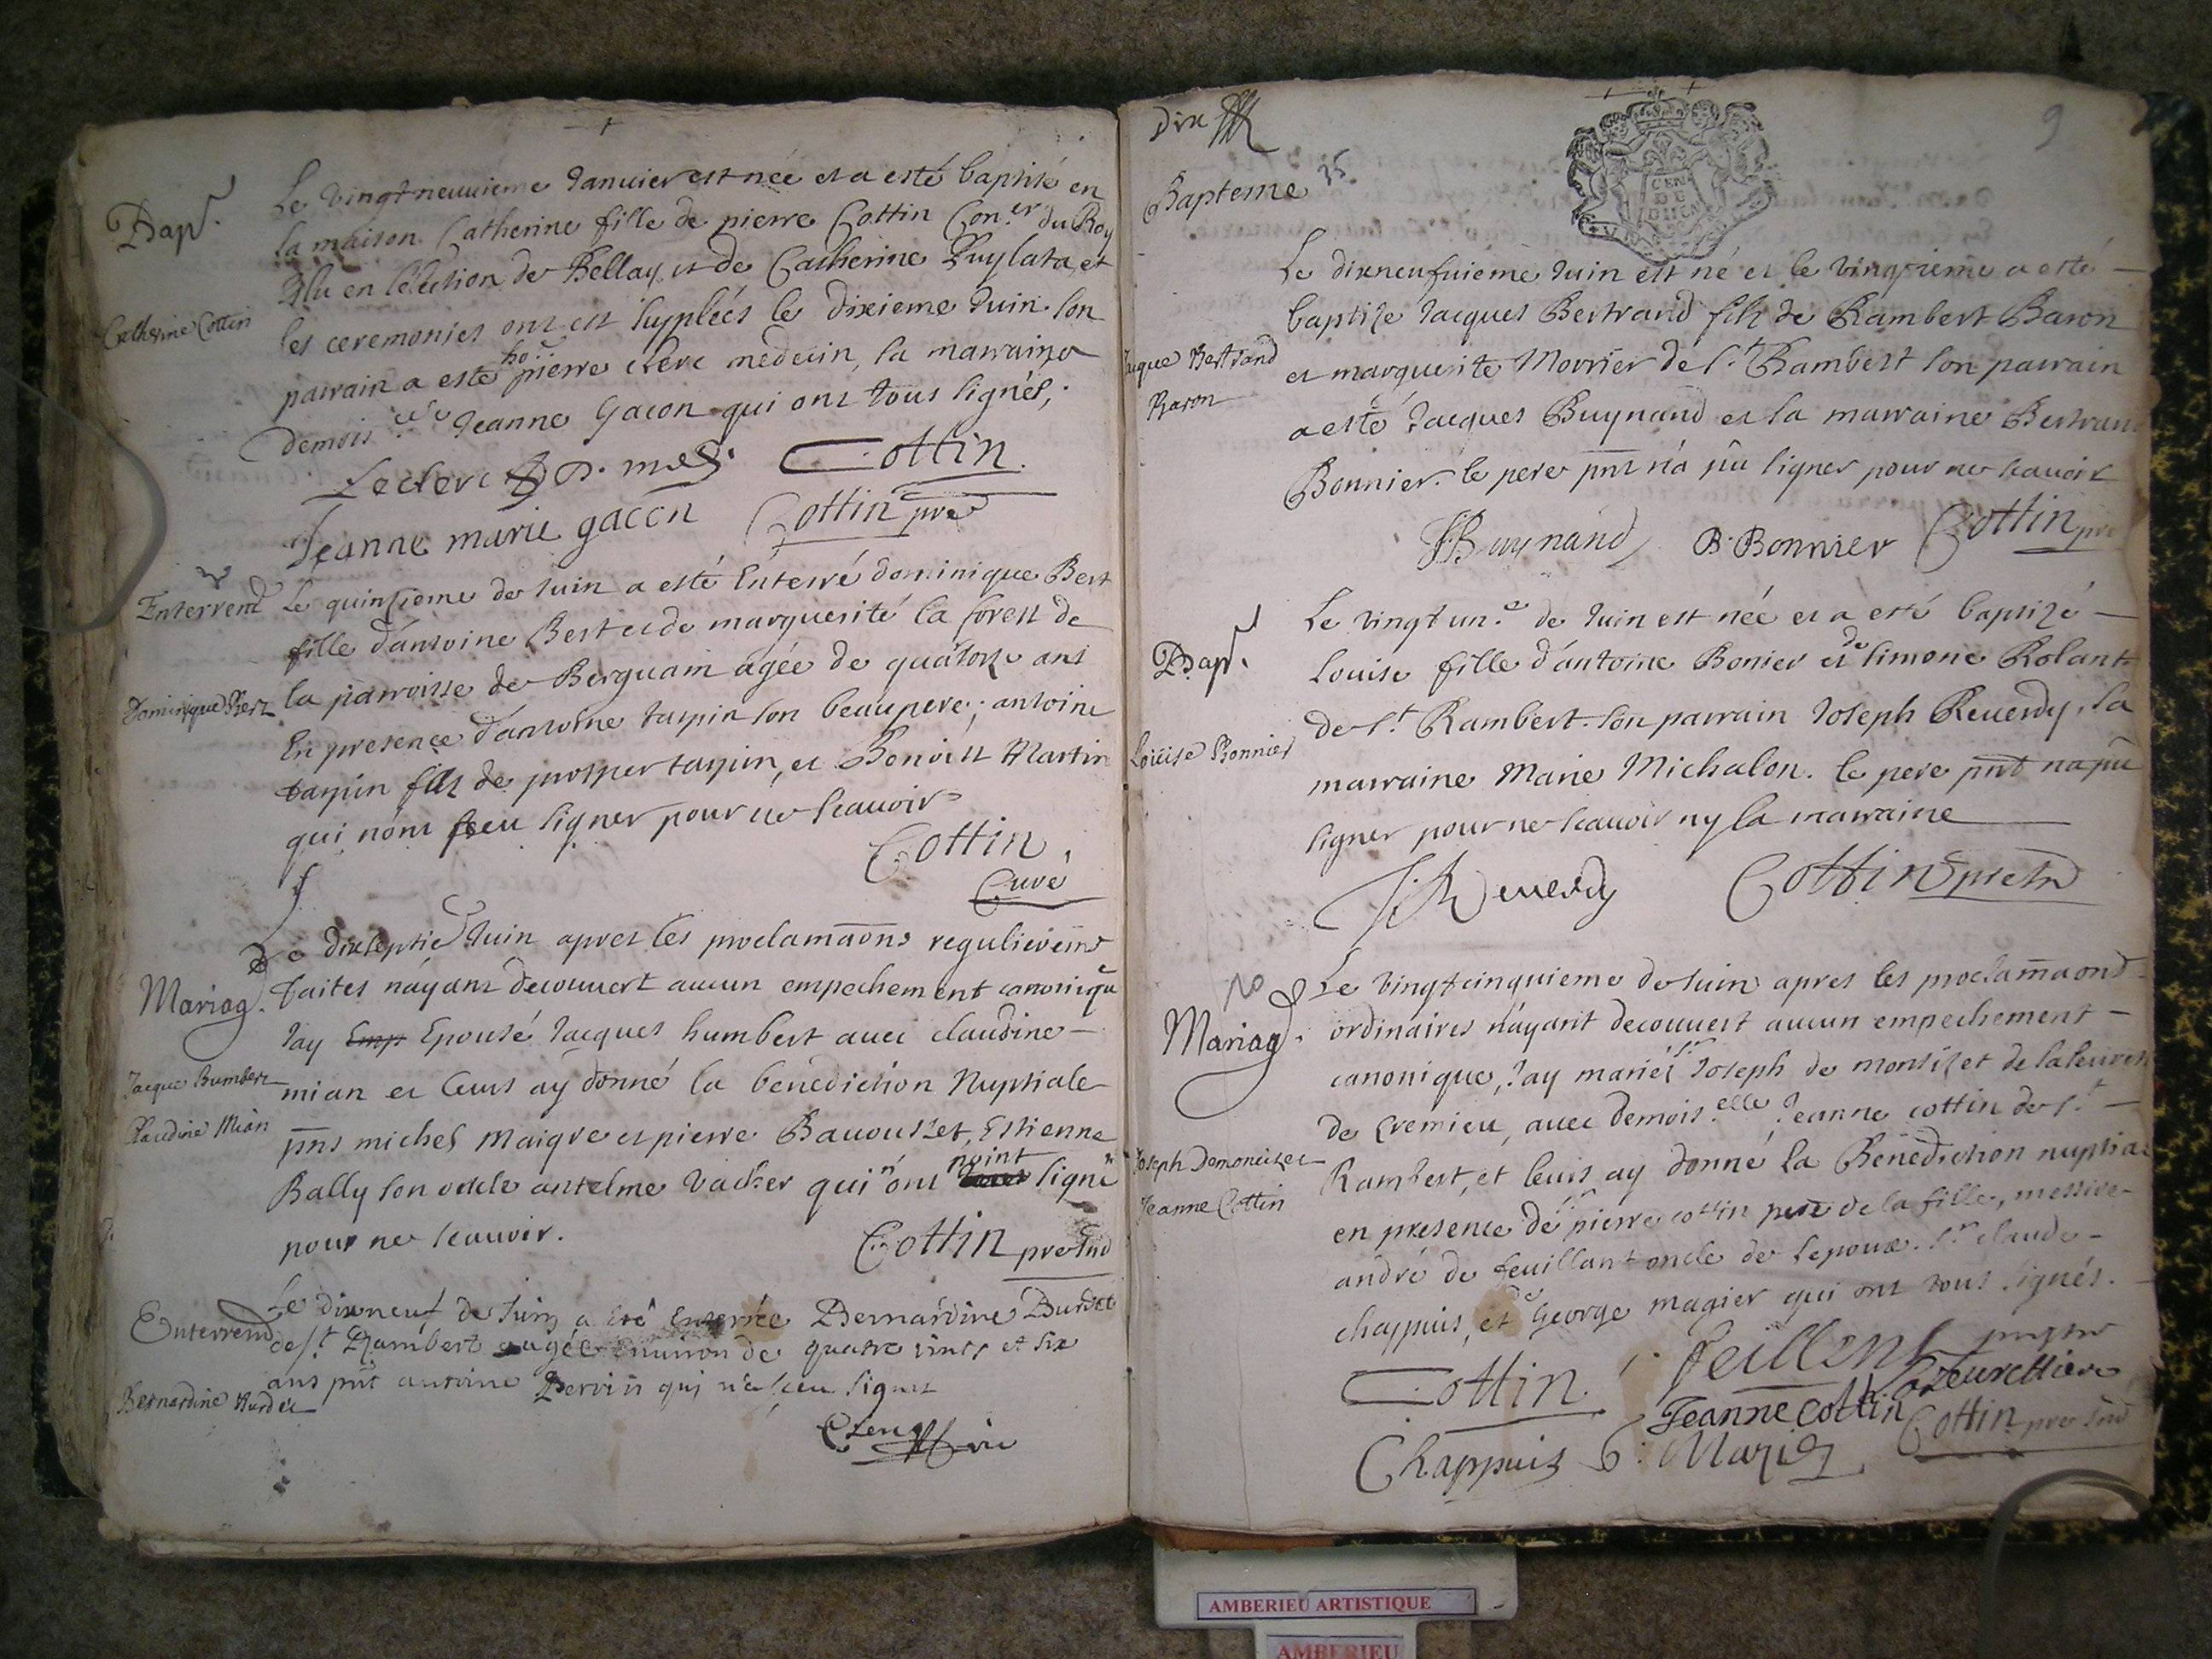 Bap.
Le vingt neuuieme Januier est née et a esté baptisé en
la maison Catherine fille de pierre Cottin Con.er du Roy
Elu en lelection de Bellay et de Catherine Puylata, et
Catherine Cottin
les ceremonies ont est supplées le dixieme Juin. son
parrain a esté ho.. pierre clerc medecin, la marraine
demois.elle Jeanne Gacon qui ont tous signés,
Leclerc D. med. Cottin
Jeanne marie gacon Cottin pre
Enterremt
Le quinsieme de Juin a esté Enterré dominique Bert
fille d'antoine Bert et de marguerite la forest de
Dominique Bert
la parroisse de Berguain agée de quatorze ans
En presence d'antoine tarpin son beaupere; antoine
tarpin fils de prosper tarpin, et Benoist Martin
qui n'ont sceu signer pour ne scauoir
Cottin
Curé
Mariag.
Le dixseptie Juin apres les proclamaōns regulieremt
faites n'ayant decouuert aucun empechement canonique
Jay Emp Epousé Jacques humbert auec claudine
Jacque Humbert
Claudine Mian
mian et leurs ay donné la benediction Nuptiale
pnts michel Maigre et pierre Bauouset, Estienne
Bally son oncle antelme Vacher qui n'ont point signé
pour ne scauoir.
Cottin pre
Enterremt
Le dixneuf de Juin a été enterrée Bernardine Burdet
de St Rambert agée enuiron de quatre vints et six
ans pnt antoine Pervin qui n'a sceu signer
Bernardine Burdet
Dix
9
Bapteme
35
CEN
DE
Le dixneufuieme Juin est né et le vingtieme a esté
baptise Jacques Bertrand fils de Rambert Baron
Jaque Bertrand
Baron
et marguerite Morrier de s.t Rambert son parrain
a esté Jacques Buynand et la marraine Bertran
Bonnier. le pere pnt n'a pû signer pour ne scauoir
JBuynand B. Bonnier Cottin pre
Bap.
Le vingt un.e de Juin est née et a esté baptizé
Louise fille d'antoine Bonier et de simone Rolant
de s.t Rambert. son parrain Joseph Reuerdy, la
Loüise Bonnier
marraine Marie Michalon. le pere pnt n'a pû
signer pour ne scauoir ny la marraine
J. Reuerdy Cottin pretr
Mariag.
Le vingtcinquieme de Juin apres les proclamaons
ordinaires n'ayant decouuert aucun empechement
canonique, Jay mariés sr Joseph de montiset de laleuret
de Cremieu, auec demois.elle Jeanne cottin de s.t
Joseph Demontizet
Jeanne Cottin
Rambert, et leurs ay donné la Benediction nuptia
en presence de sr pierre cottin pere de la fille, messire
andré de feuillant oncle de lepoux. sr claude
chappuis, et de George magier qui ont tous signés.
Cottin feillent
Jeanne cottin Cottin pre
Chappuis G. Magier
AMBERIEU ARTISTIQUE
AMBERIEU